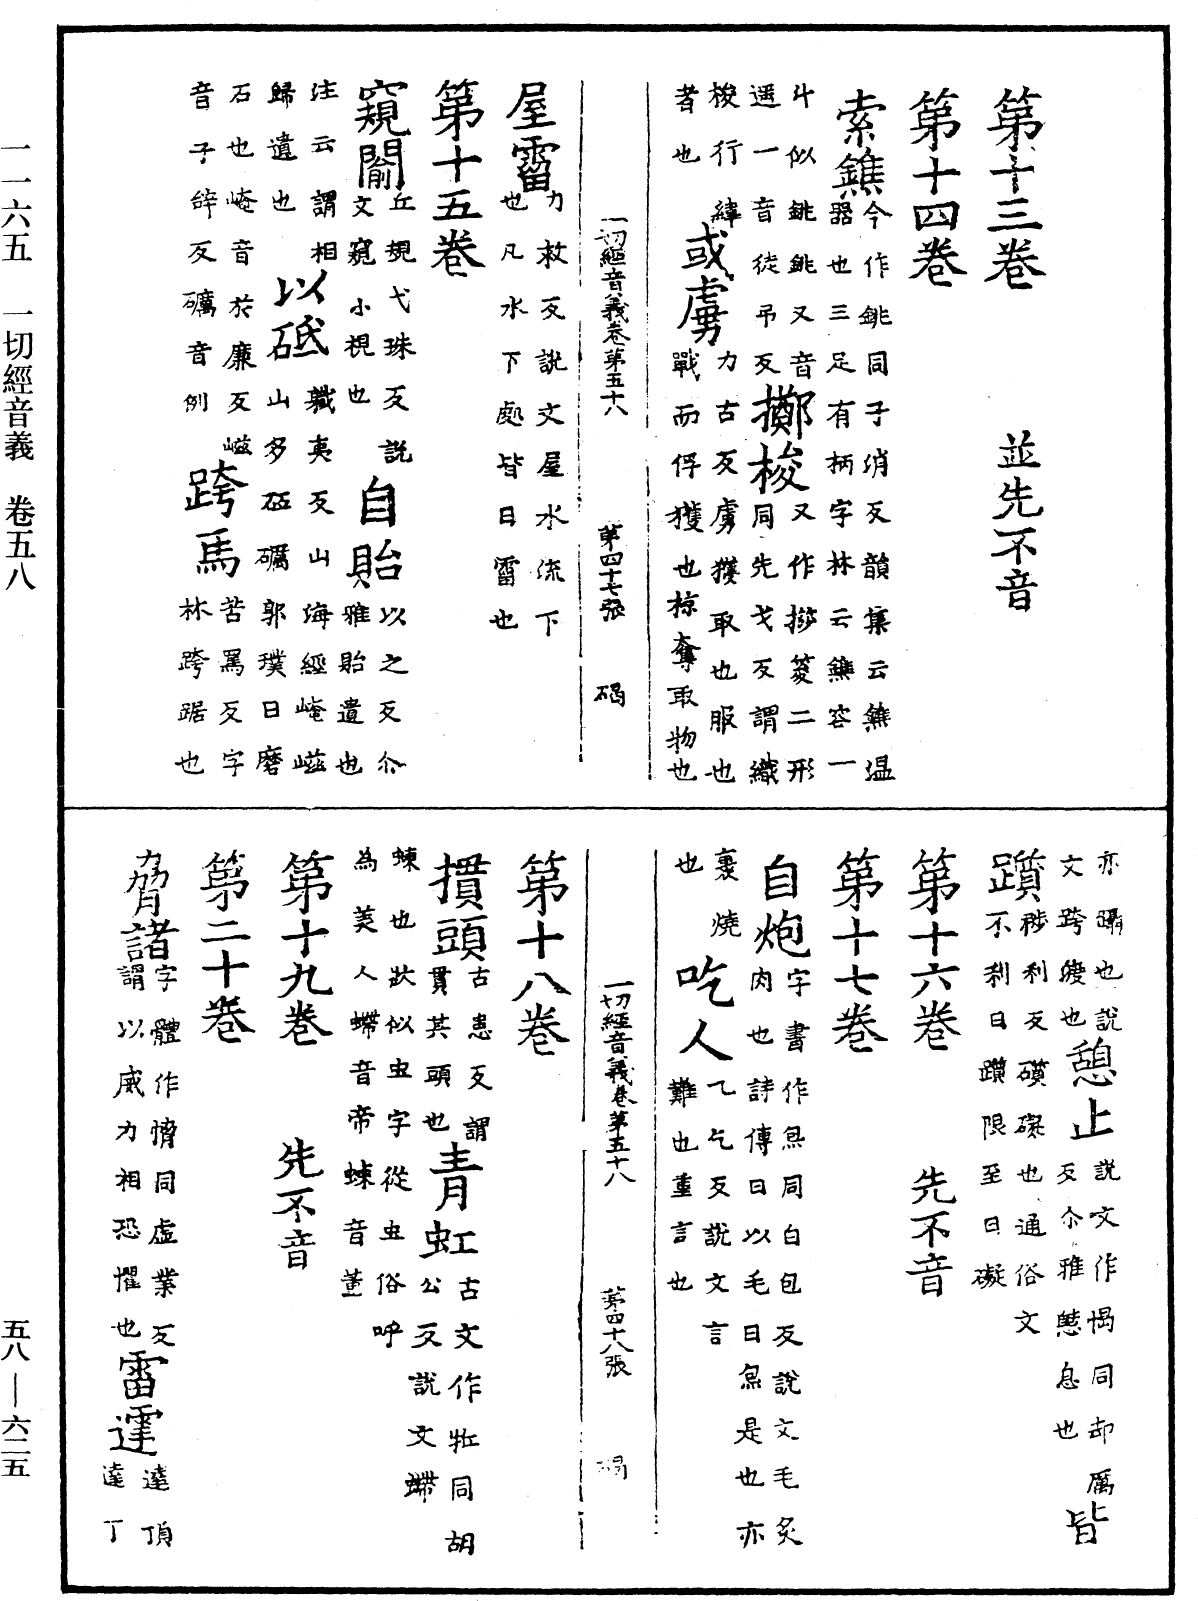 一一六五　一切經音義　卷五八
五八—六二五
第十三卷　並先不音
第十四卷
索鐎今作銚同子消反韻集云鐎温
器也三足有柄字林云鐎容一
斗似銚銚又音
遥一音徒吊反擲梭又作㩳篓二形
同先戈反謂織
梭行緯
者也或虜力古反虜獲取也服也
戰而俘獲也掠奪取物也
一切經音義卷第五十八　第四十七張　碣
屋霤力救反説文屋水流下
也凡水下處皆曰霤也
第十五卷
窺闚丘規弋珠反説
文窺小視也自貽以之反尒
雅貽遺也
注云謂相
歸遺也以砥軄夷反山海經崦嵫
山多砥礪郭璞曰磨
石也崦音於廉反嵫
音子辝反礪音例跨馬苦罵反字
林跨踞也
亦躡也説
文跨渡也憩止説文作愒同却厲
反尒雅憇息也皆
躓陟利反礩礙也通俗文
不利曰躓限至曰礙
第十六卷　先不音
第十七卷
自炮字書作炰同白包反説文毛炙
肉也詩傳曰以毛曰炰是也亦
裹燒
也吃人乙乞反説文言
難也重言也
一切經音義卷第五十八　第四十八張　碣
第十八卷
摜頭古患反謂
貫其頭也青虹古文作𧈫同胡
公反説文螮
蝀也狀似虫字從虫俗呼
為美人螮音帝蝀音董
第十九卷　先不音
第二十卷
脅諸字體作愶同虛業反
謂以威力相恐懼也雷霆達頂
達丁